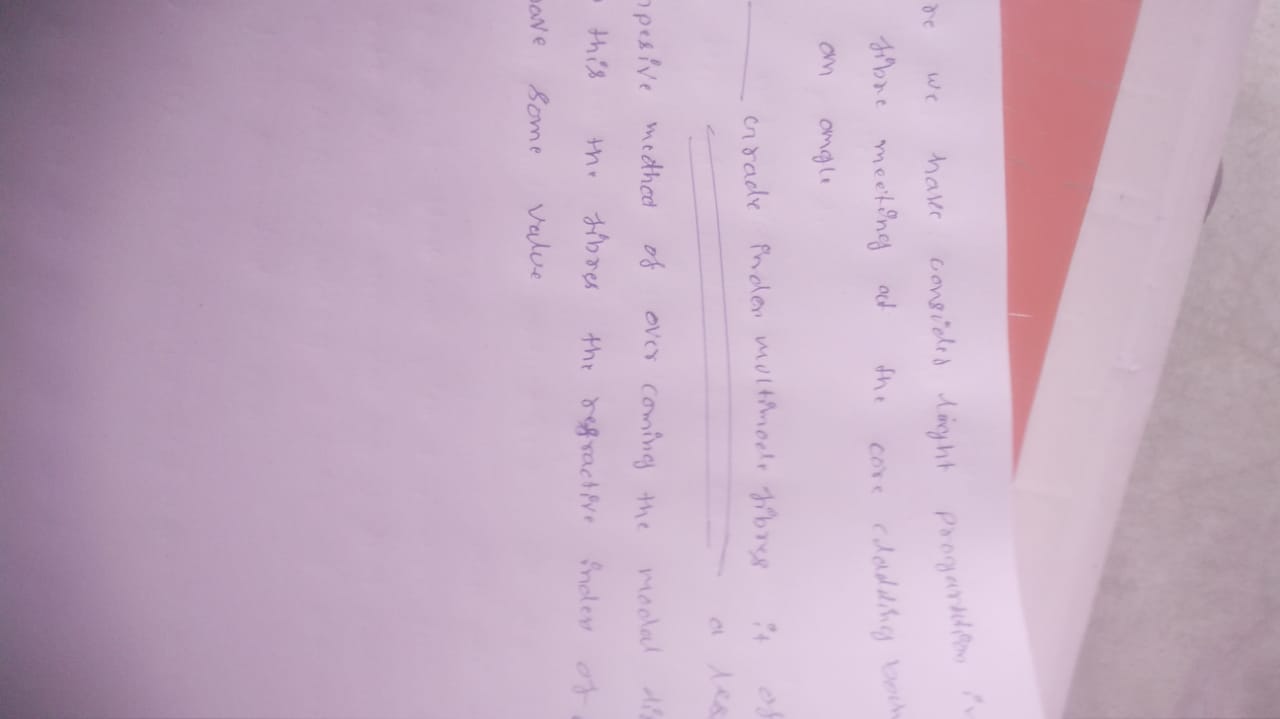 we have consider light propagation in
fibre meeting at the core cladding
an angle
Grade index multimode fibres it
a
method of over coming the modal
this the fibres the refractive index of
some value